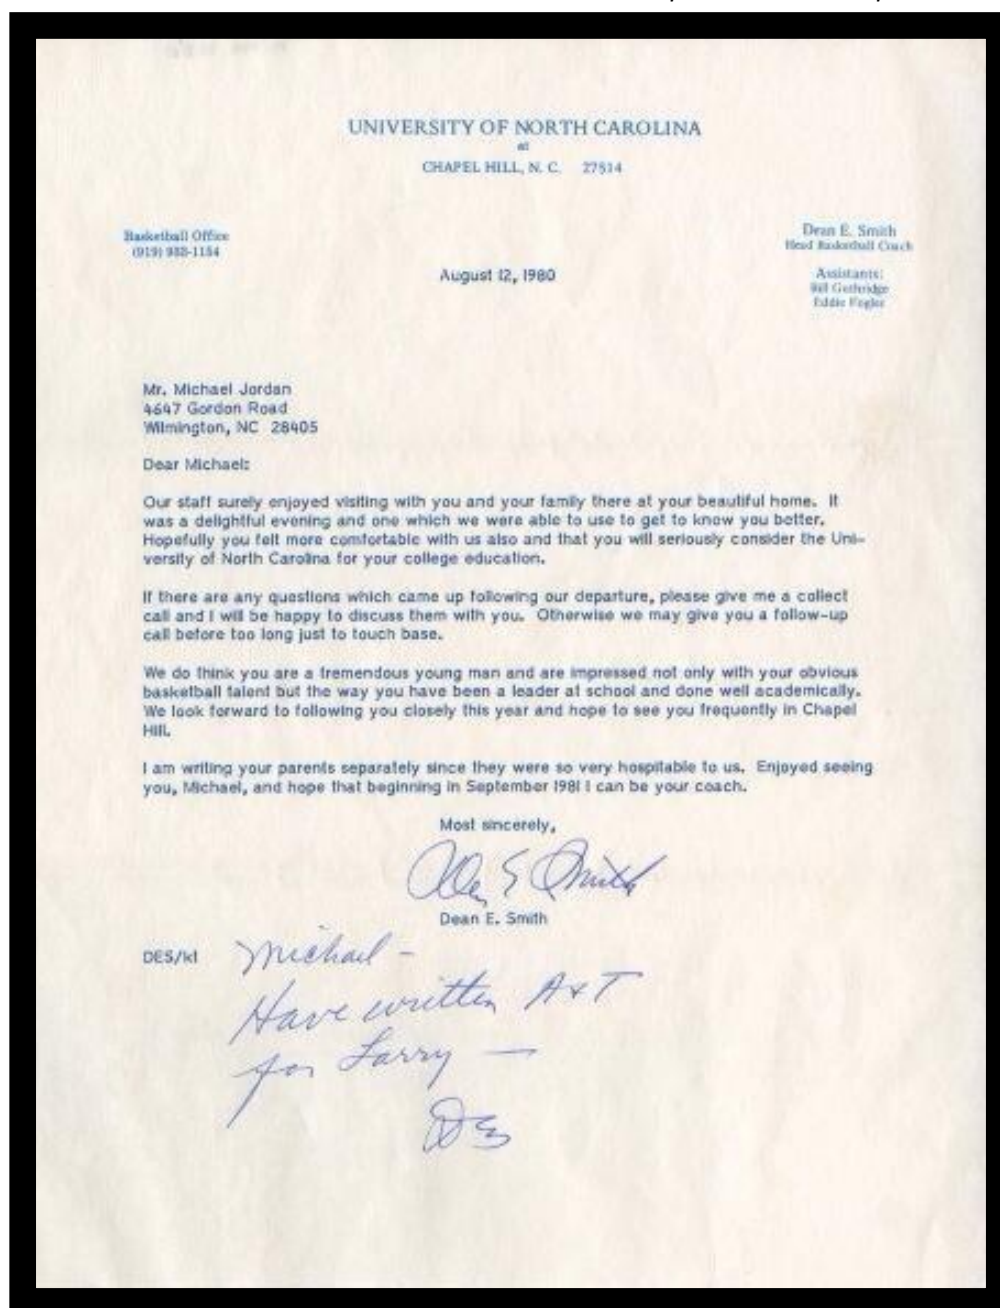 UNIVERSITY OF NORTH CAROLINA
at
CHAPEL HILL, N. C. 27514
Basketball Office
(919) 933-1154
Dean E. Smith
Head Basketball Coach
Assistants:
Bill Guthridge
Eddie Fogler
August 12, 1980
Mr. Michael Jordan
4647 Gordon Road
Wilmington, NC 28405
Dear Michael:
Our staff surely enjoyed visiting with you and your family there at your beautiful home. It
was a delightful evening and one which we were able to use to get to know you better.
Hopefully you felt more comfortable with us also and that you will seriously consider the Uni-
versity of North Carolina for your college education.
If there are any questions which came up following our departure, please give me a collect
call and I will be happy to discuss them with you. Otherwise we may give you a follow-up
call before too long just to touch base.
We do think you are a tremendous young man and are impressed not only with your obvious
basketball talent but the way you have been a leader at school and done well academically.
We look forward to following you closely this year and hope to see you frequently in Chapel
Hill.
I am writing your parents separately since they were so very hospitable to us. Enjoyed seeing
you, Michael, and hope that beginning in September 1981 I can be your coach.
Most sincerely,
Dean E Smith
Dean E. Smith
DES/kl
Michael -
Have written A&T
for Larry —
DES